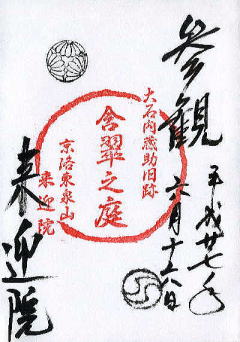 参観
平成廿七年
六月十六日
大石内蔵助旧跡
含翠之庭
京洛東泉山
来迎院
来迎院